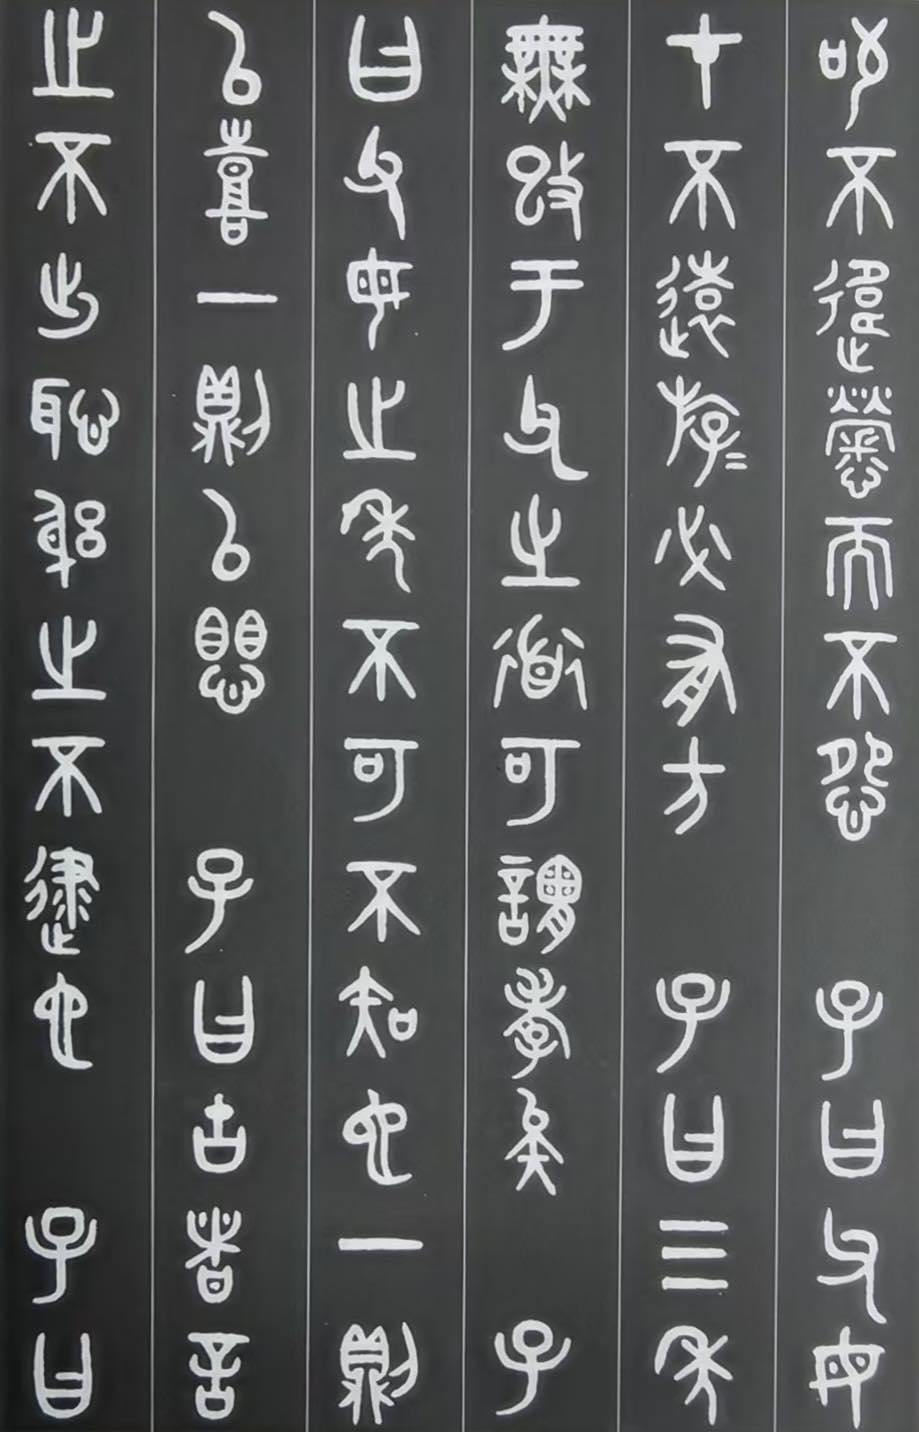 敬不違勞而不怨 子曰父母
在不遠遊〻必有方 子曰三年
無改于父之道可謂孝矣 子
曰父母之年不可不知也一則
以喜一則以懼 子曰古者言
之不出恥躬之不逮也 子曰